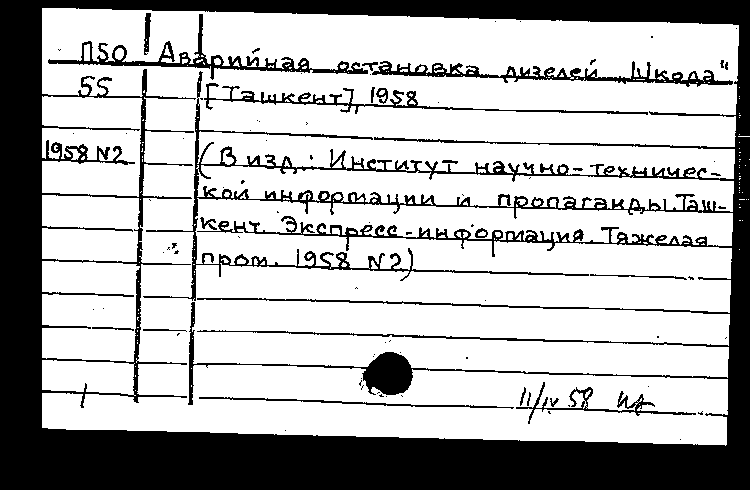 П50 Аварийная остановка дизелей „Шкода"
55 [Ташкент], 1958
1958 N2 (В изд.: Институт научно-техничес-
кой информации и пропаганды. Таш-
кент. Экспресс-информация. Тяжелая
пром. 1958 N2)
11/IV 58